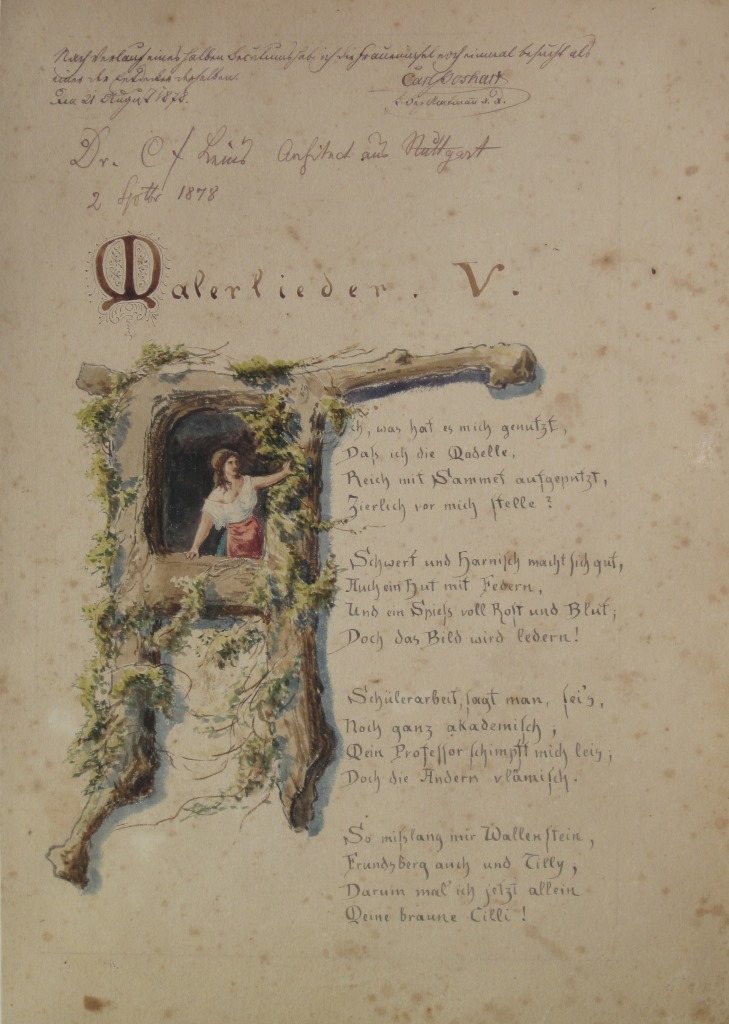 Nach Verlauf eines halben Seculums hab ich die Fraueninsel noch einmal besucht als
einer der Entdecker derselben.
Den 21 August 1878.
Carl Boshart
Dr. C f Leins Architect aus Stuttgart
2 1878
Malerlieder. V.
Ach, was hat es mich genutzt,
Daß ich die Modelle,
Reich mit Sammet aufgeputzt,
Zierlich vor mich stelle?
Schwert und Harnisch macht sich gut,
Auch ein Hut mit Federn,
Und ein Spieß voll Rost und Blut;
Doch das Bild wird ledern!
Schülerarbeit, sagt man, sei's,
Noch ganz akademisch;
Mein Professor schimpft mich leis;
Doch die Andern vlämisch.
So mißlang mir Wallenstein,
Frundsberg auch und Tilly;
Darum mal' ich jetzt allein
Meine braune Cilli!